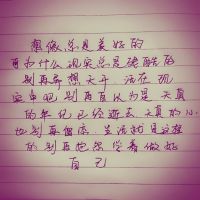 想像总是美好的
可为什么现实总是残酷的
别再奇想天开 活在现
实中吧 别再自以为是 天真
的年纪已经逝去 天真的心
也别再留恋 生活就是这样
的 别再勉强 学着做好
自己